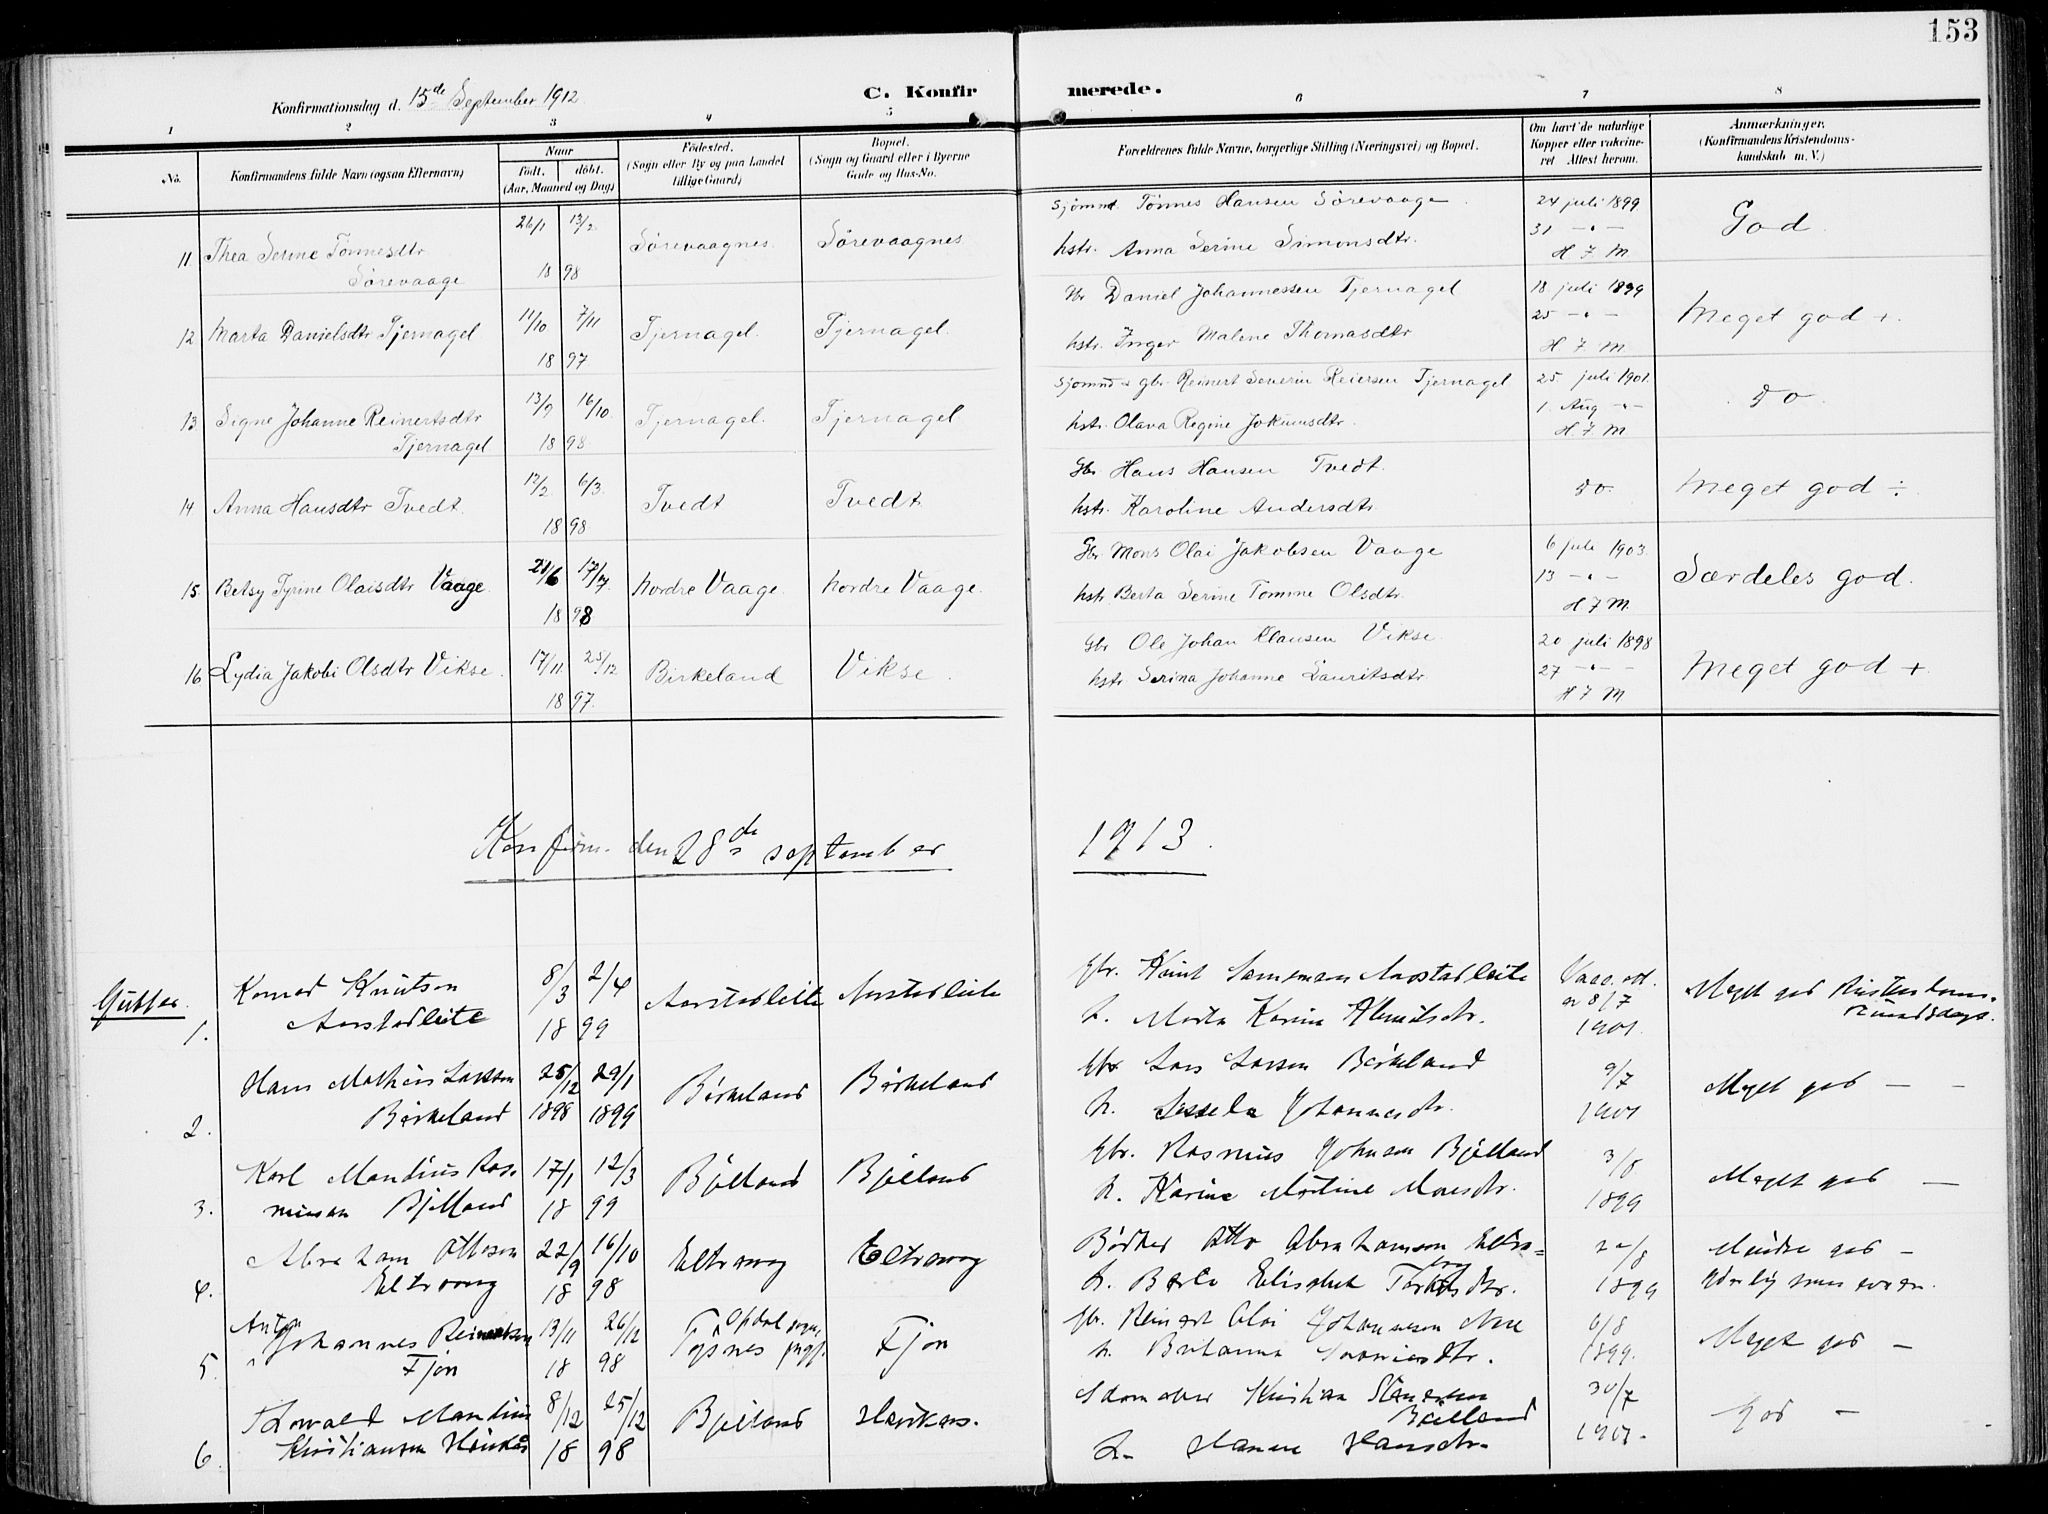 153
Konfirmationsdag d. 15de September 1912 C. Konfirmerede.
1 2 3 4 5 6 7 8
No. Konfirmandens fulde Navn (ogsaa Efternavn) Naar født. døbt. (Aar, Maaned og Dag) Fødested. (Sogn eller By og paa Landet tillige Gaard) Bopæl. (Sogn og Gaard eller i Byerne Gade og Hus-No. Forældrenes fulde Navne, borgerlige Stilling (Næringsvei) og Bopæl. Om havt de naturlige Kopper eller vaccineret Attest herom. Anmærkninger. (Konfirmandens Kristendomskundskab m. V.)
26/1 13/2 Sjømnd Tønnes Hansen Sørevaage 24 juli 1899
11 Thea Serine Tønnesdtr Sørevaagnes Sørevaagnes hstr. Anna Serine Simonsdtr. 31 -"- God
Sørevaage 18 98 H 7 M
11/10 7/11 Gbr Daniel Johannessen Tjernagel 18 juli 1899
12 Marta Danielsdtr Tjernagel Tjernagel. Tjernagel. hstr. Inger Malene Thomasdtr 25 -"- Meget god +.
18 97 H 7 M
13/9 16/10 Sjømnd & gbr. Reinert Severin Reiersen Tjernagel 25 juli 1901.
13 Signe Johanne Reinertsdtr Tjernagel. Tjernagel hstr. Olava Regine Jokumsdtr. 1. Aug -"- do.
Tjernagel 18 98 H. 7 M
12/2 6/3 Gbr Hans Hansen Tvedt.
14 Anna Hansdtr Tvedt. Tvedt Tvedt hstr. Karoline Andersdtr do. Meget god ÷
18 98
21/6 17/7 Gbr Mons Olai Jakobsen Vaage 6 juli 1903.
15 Betsy Tyrine Olaisdtr Vaage. Nordre Vaage. Nordre Vaage. hstr. Berta Serine Tomine Olsdtr. 13 -"- Særdeles god.
18 98 H 7 M.
17/11 25/12 Gbr Ole Johan Klausen Vikse. 20 juli 1898
16 Lydia Jakobi Olsdtr Vikse. Birkeland Vikse. hstr Serina Johanne Lauritsdtr. 27 -"- Meget god +
18 97. H 7 M
Konfirm. den 28de september 1913.
Gutter.
1. Konrad Knutson 8/3 2/4 Aarstadleite Aarstadleite gbr. Knut Aarstadleite
Aarstadleite 18 99 h. Marta Karina 8/7 1901. Meget god
2. Hans Mathias Larsson 25/12 29/1 Børkeland Børkeland gbr Lars Larsson Børkeland 9/7
Børkeland 1898 1899 h. Johannesdtr. 1901 Meget god -
3. Karl Mandius Ras- 17/1 12/3 Bjelland Bjelland gbr. Rasmus Johnsen Bjelland 3/8
musson Bjelland 18 99 h. Karine Martine Monsdtr. 1899 Meget god -
4. Abraham Ottoson 22/9 16/10 Eltravaag Eltravaag Bødker Otto Abrahamson Eltra=
Eltravaag 18 98 h. Berta Elisabet 1899 Mindre god -
5. Anton Johannes Reinertson 13/11 26/12 Opdal sogn, Tysnes prgj. Fjon gbr. Reinert Olai Johannesson 6/8
Fjon 18 98 h. 1899. Meget god -
6. Mandius 8/12 25/12 Bjelland Kristian Bjelland 30/7
Kristianson 18 98 h. Hanna Hansdtr. 1901. God -